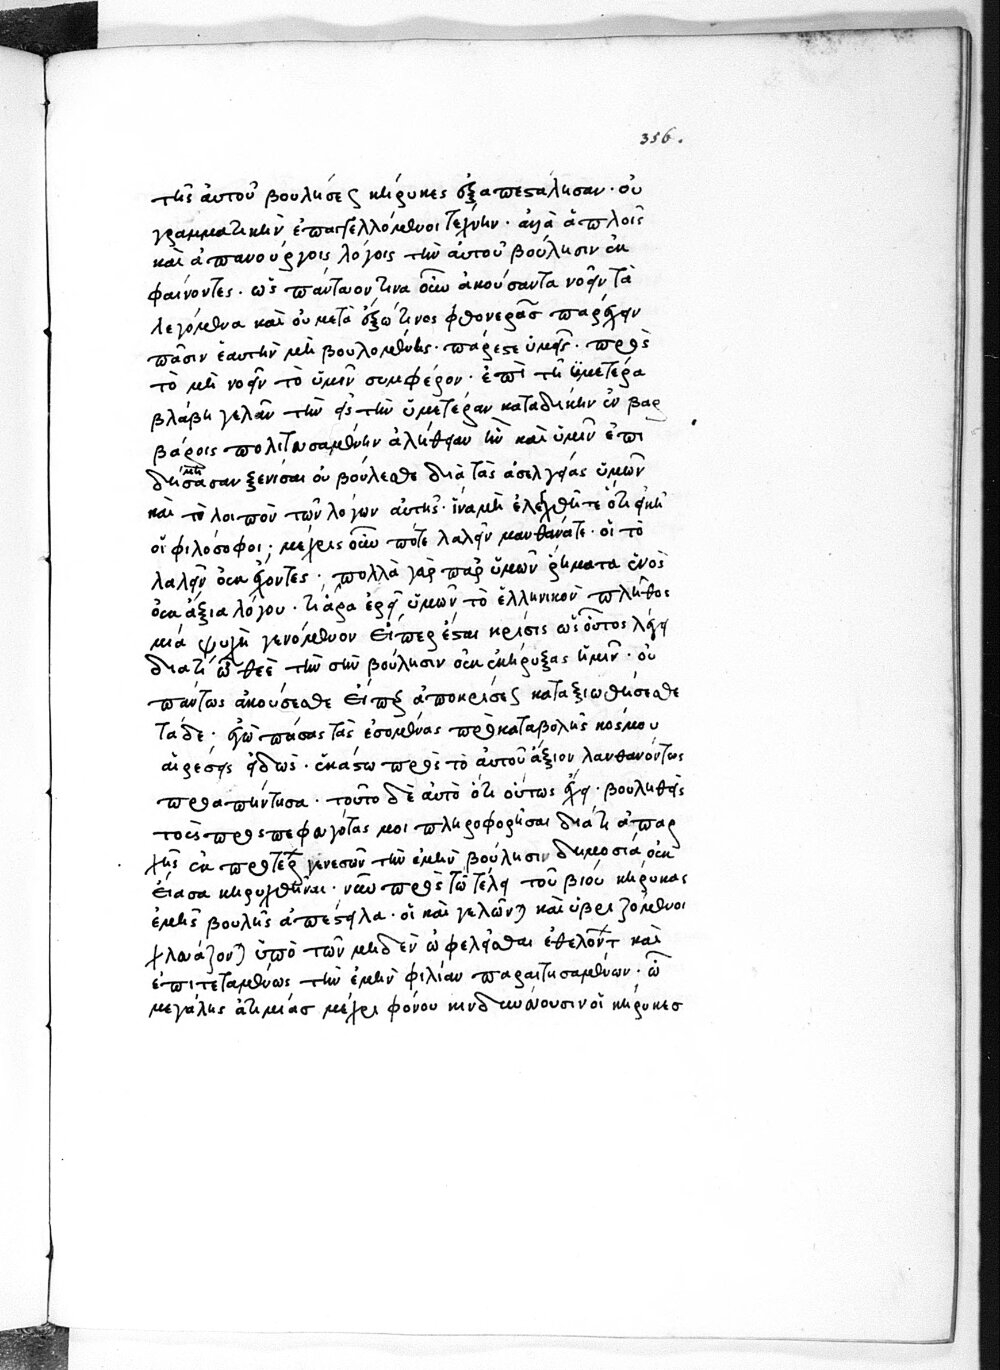 356.
τῆς ἀυτοῦ βουλήσεως κήρυκες ἐξαπεστάλησαν· οὐ
γραμματικὴν ἐπαγγελλόμενοι τέχνην· ἀλλὰ ἁπλοῖς
καὶ ἀπανούργοις λόγοις τὴν ἀυτοῦ βούλησιν ἐκ
φαίνοντες· ὡς πάντα ὁντινα οὖν ἀκούσαντα νοεῖν τὰ
λεγόμενα καὶ οὐ μετὰ ἕξεώς τινος φθονερᾶς παρέχειν
πᾶσιν ἑαυτὴν μὴ βουλομένης· πάρεστε ὑμεῖς· πρὸς
τὸ μὴ νοεῖν τὸ ὑμῖν συμφέρον· ἐπὶ τῇ ὑμετέρα
βλάβη γελᾶν τὴν εἰς τὴν ὑμετέραν καταδίκην ἐν βαρ
βάροις πολιτευσαμένην ἀλήθειαν ἣν καὶ ὑμῖν ἐπι
δημήσασαν ξενίσαι οὐ βούλεσθε διὰ τὰς ἀσελγείας ὑμῶν
καὶ τὸ λοιπὸν τῶν λόγων αὐτῆς· ἵνα μὴ ἐλεγχθῆτε ὅτι εἰκῆ
οἱ φιλόσοφοι; μέχρις οὖν πότε λαλεῖν μανθάνετε· οἱ τὸ
λαλεῖν οὐκ ἔχοντες; πολλὰ γὰρ παρ ὑμῶν ῥήματα ἑνὸς
οὐκ ἄξια λόγου· τί ἄρα ἐρεῖ ὑμῶν τὸ ἑλληνικὸν πλῆθος
μιά ψυχὴ γενόμενον εἴπερ ἔσται κρίσις ὡς οὗτος λέγει
διατί ὦ θεὲ τὴν σὴν βούλησιν οὐκ ἐκήρυξας ἡμῖν· οὐ
πάντως ἀκούσεσθε εἴπερ ἀποκρίσεως καταξιωθήσεσθε
τάδε· ἐγὼ πάσας τὰς ἐσομένας πρὸ καταβολῆς κόσμου
αἱρέσεις εἰδὼς· ἑκάστω πρὸς τὸ αὐτοῦ ἄξιον λανθανόντως
προαπήντησα· τοῦτο δὲ αὐτὸ ὅτι οὕτως ἔχει· βουληθεὶς
τοῖς προσπεφευγόσας μοι πληροφορῆσαι διατί ἀπαρ
χῆς ἐκ προτέρων γενεσῶν τὴν ἐμὴν βούλησιν δημοσιά οὐκ
εἴασα κηρυχθῆναι· νῦν πρὸς τῶ τέλει τοῦ βιού κήρυκας
ἐμῆς βουλῆς ἀπέστειλα· οἳ καὶ γελῶνται καὶ ὑβριζόμενοι
χλευάζονται ὑπὸ τῶν μηδὲν ὠφελεῖσθαι ἐθελόντων καὶ
ἐπιτεταμένως τὴν ἐμὴν φιλίαν παραιτησαμένων· ὢ
μεγάλης ἀτιμίας μέχρι φόνου κινδυνεύουσιν οἱ κήρυκες